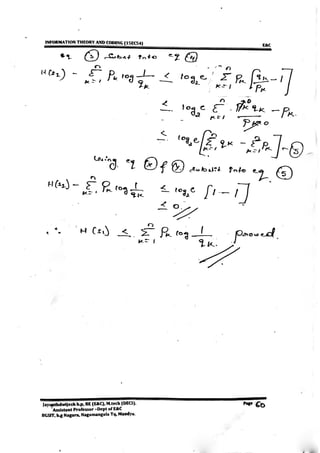 INFORMATION THEORY AND CODING (15EC54) E&C
eq ③ subst into eq ④
H(s₂) - Σ_{k=1}^{n} P_k log 1/q_k ≤ log₂ e Σ_{k=1}^{n} P_k [q_k/P_k - 1]
≤ log₂ e Σ_{k=1}^{n} P_k q_k - P_k
≤ log₂ e [Σ_{k=1}^{n} q_k - Σ_{k=1}^{n} P_k] - ⑤
using eq & substit into eq ⑤
H(s₂) - Σ_{k=1}^{n} P_k log 1/q_k ≤ log₂ e [1 - 1]
≤ 0
∴ H(s₂) ≤ Σ_{k=1}^{n} P_k log 1/q_k. proved.
Jayanthdwijesh h.p, BE (E&C), M.tech (DECS). Page 60
Assistant Professor –Dept of E&C
BGSIT, b.g Nagara, Nagamangala Tq, Mandya.